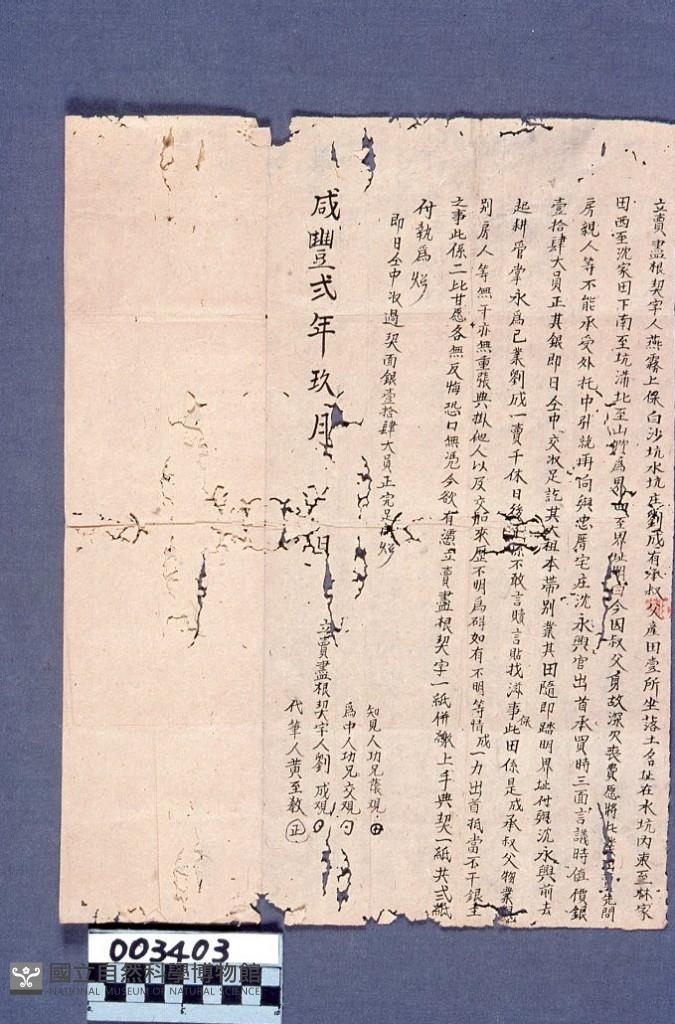 立賣盡根契字人燕霧上保白沙坑水坑庄劉成有承叔父產田壹所坐落土名址在水坑內東至林家
田西至沈家田下南至坑溝北至山為界四至界址明白今因叔父身故深欠喪費愿將此先問
房親人等不能承受外托中引就再向與忠厝宅庄沈永興官出首承買時三面言議時值價銀
壹拾肆大員正其銀即日仝中交收足訖其大租本帶別業其田隨即踏明界址付與沈永興前去
起耕管掌永為己業劉成一賣千休日後不敢言贖言貼找滋事保此田係是成承叔父物業與
別房人等無干亦無重張典掛他人以及交加來歷不明為碍如有不明等情成一力出首抵當不干銀主
之事此係二比甘愿各無反悔恐口無憑今欲有憑立賣盡根契字一紙併繳上手典契一紙共弍紙
付執為炤
即日仝中收過契面銀壹拾肆大員正完足炤
知見人功兄 觀
為中人功兄交觀
咸豐弍年玖月 日 立賣盡根契字人劉成觀
代筆人黃至教 正
003403
國立自然科學博物館
NATIONAL MUSEUM OF NATURAL SCIENCE